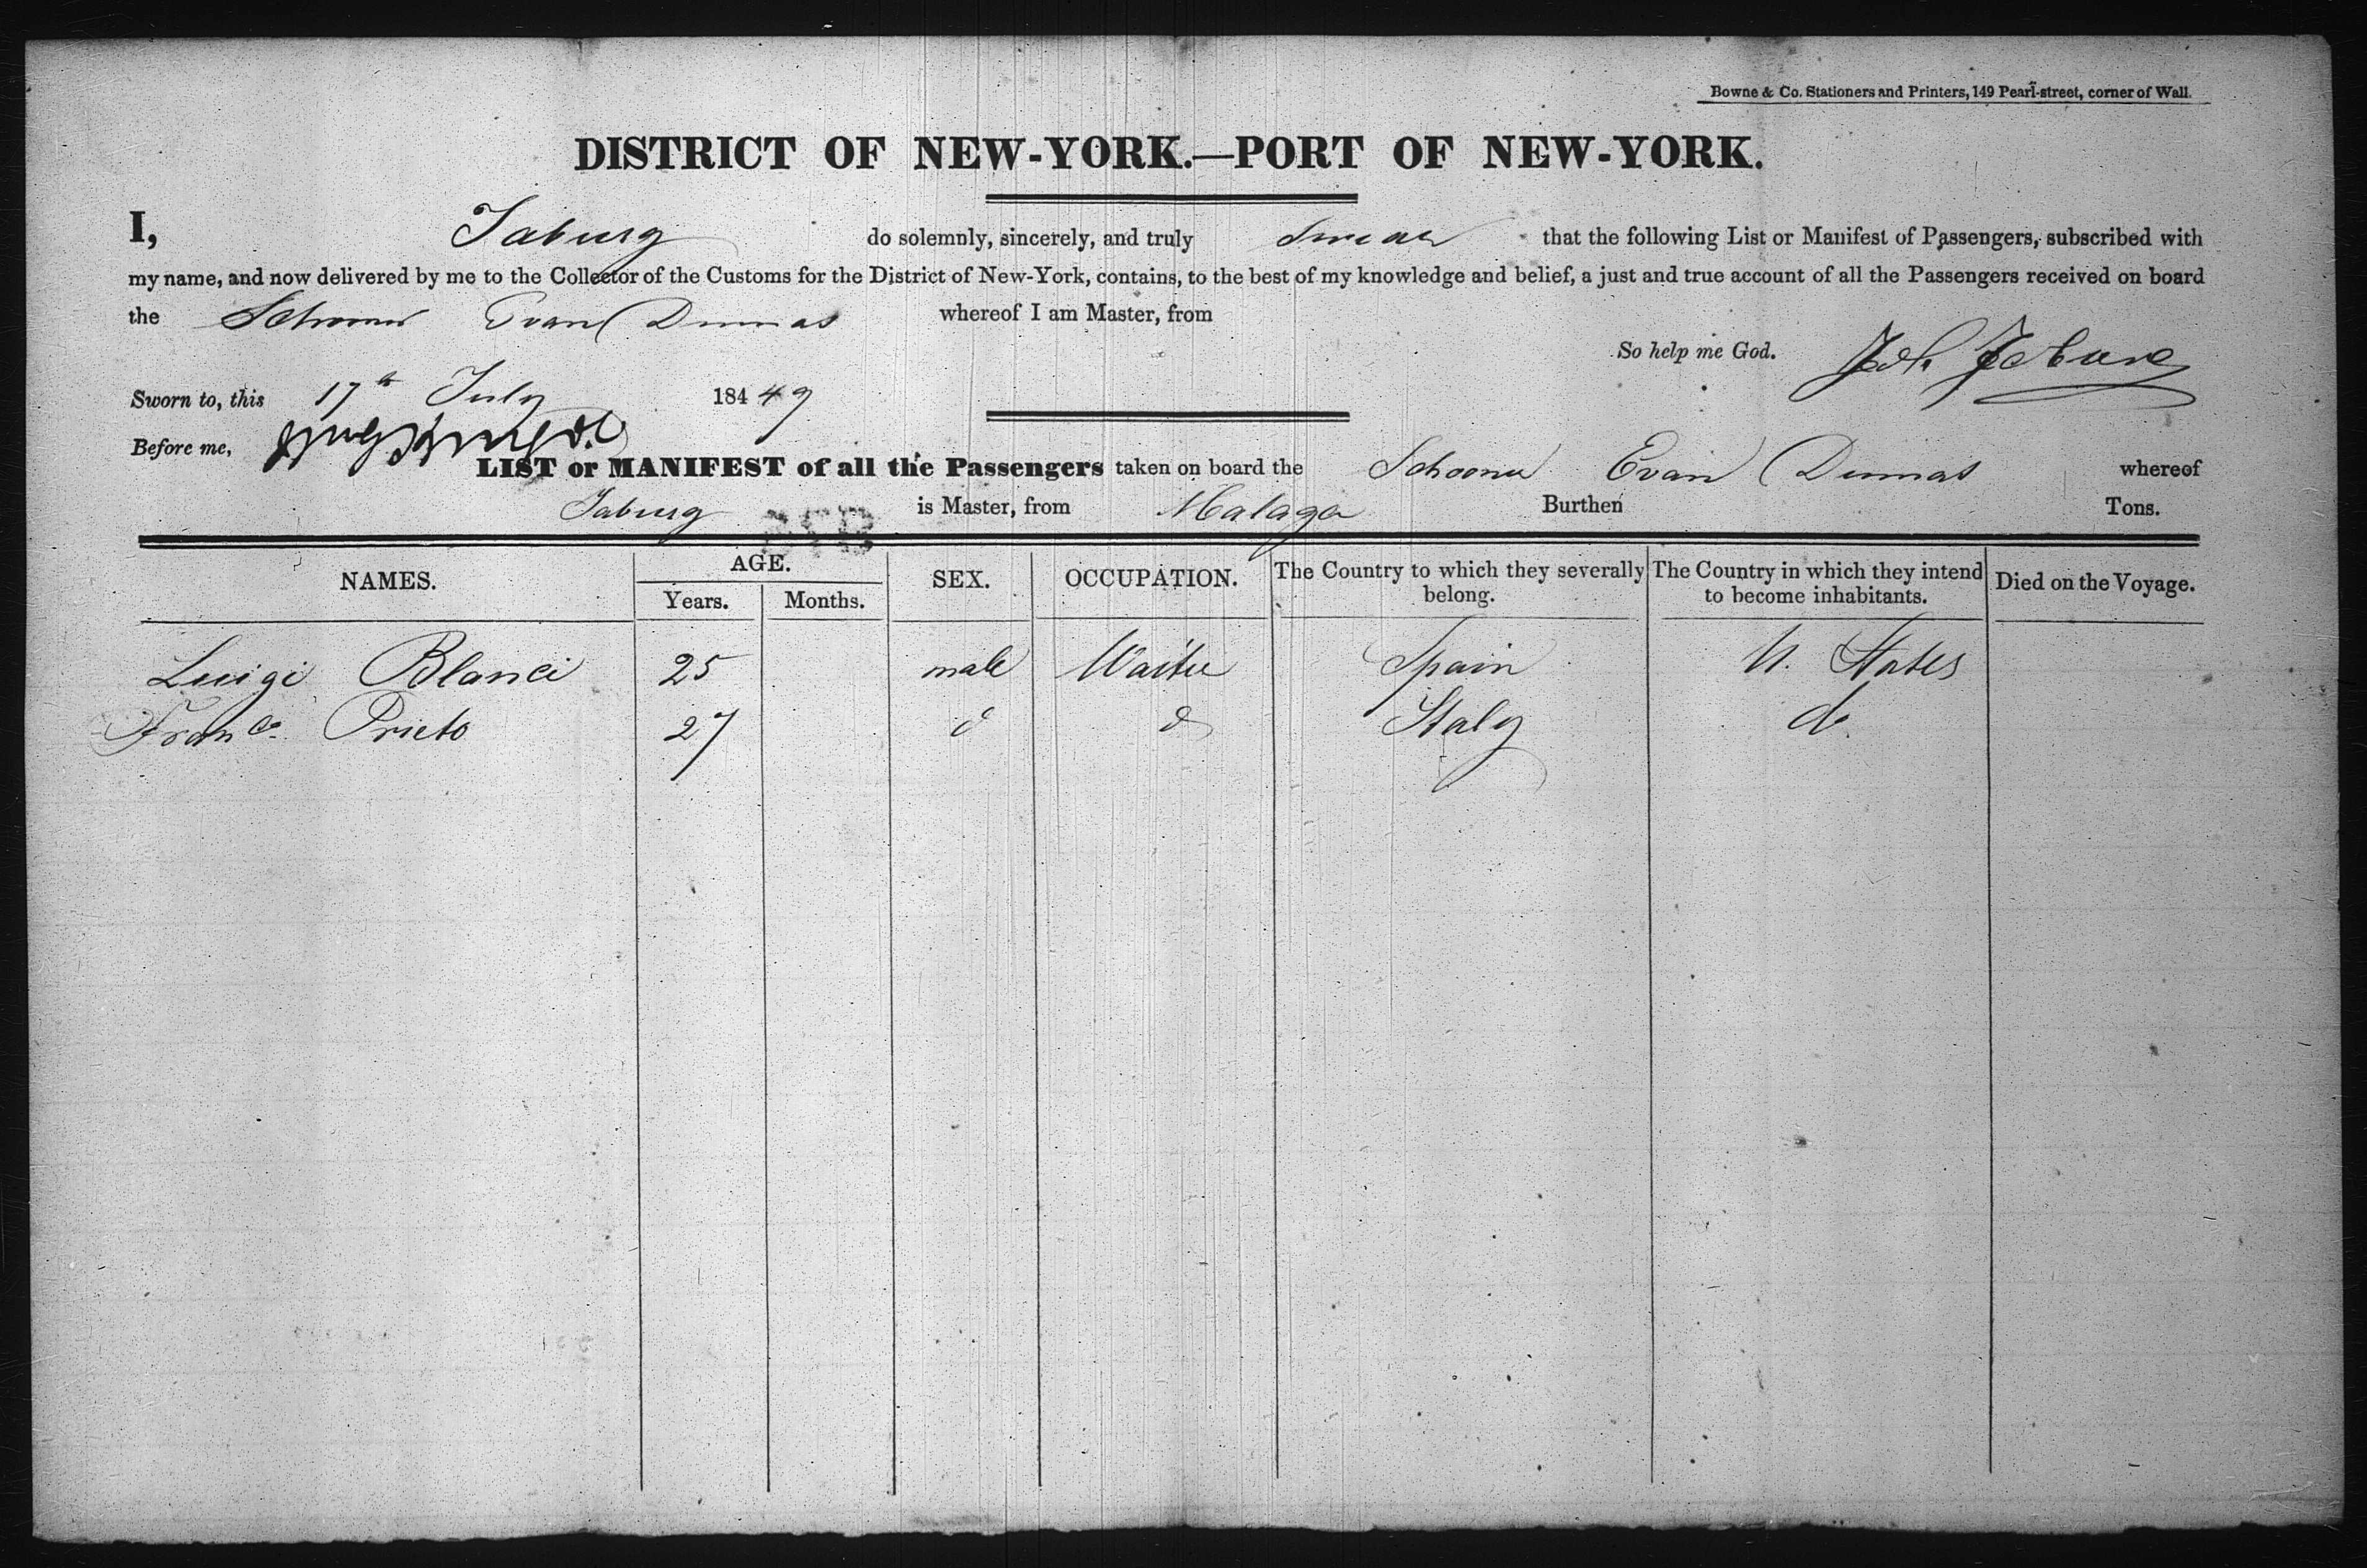 Bowne & Co. Stationers and Printers, 149 Pearl-street, corner of Wall.
DISTRICT OF NEW-YORK.—PORT OF NEW-YORK.
I, Jaburg do solemnly, sincerely, and truly swear that the following List or Manifest of Passengers, subscribed with
my name, and now delivered by me to the Collector of the Customs for the District of New-York, contains, to the best of my knowledge and belief, a just and true account of all the Passengers received on board
the Schooner Evan Dumas whereof I am Master, from
So help me God.
Sworn to, this 17th July 184 49
Before me,
LIST or MANIFEST of all the Passengers taken on board the Schooner Evan Dumas whereof
Jaburg is Master, from Malaga Burthen Tons.
NAMES. AGE. SEX. OCCUPATION. The Country to which they severally belong. The Country in which they intend to become inhabitants. Died on the Voyage.
Years. Months.
Luigi Blanci 25 male Waiter Spain U. States
Franco. Prieto 27 d d Italy do.